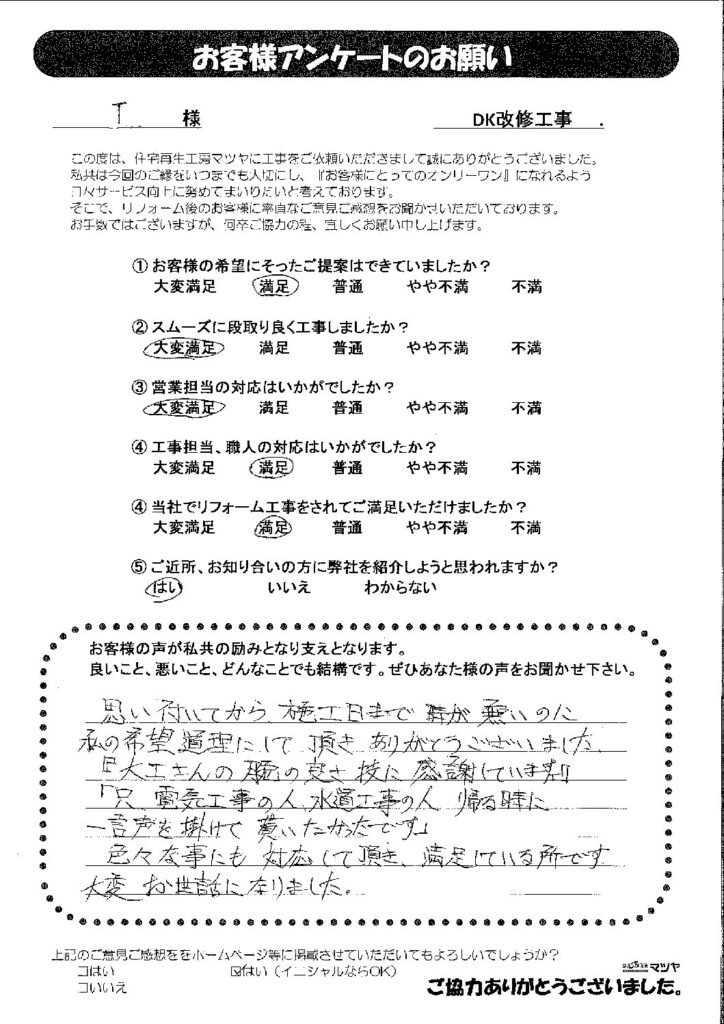 お客様アンケートのお願い
T 様 DK改修工事
この度は、住宅再生工房マツヤに工事をご依頼いただきまして誠にありがとうございました。
私共は今回のご縁をいつまでも大切にし、『お客様にとってのオンリーワン』になれるよう
日々サービス向上に努めてまいりたいと考えております。
そこで、リフォーム後のお客様に率直なご意見ご感想をお聞かせいただいております。
お手数ではございますが、何卒ご協力の程、宜しくお願い申し上げます。
① お客様の希望にそったご提案はできていましたか？
大変満足 満足 普通 やや不満 不満
② スムーズに段取り良く工事しましたか？
大変満足 満足 普通 やや不満 不満
③ 営業担当の対応はいかがでしたか？
大変満足 満足 普通 やや不満 不満
④ 工事担当、職人の対応はいかがでしたか？
大変満足 満足 普通 やや不満 不満
④ 当社でリフォーム工事をされてご満足いただけましたか？
大変満足 満足 普通 やや不満 不満
⑤ ご近所、お知り合いの方に弊社を紹介しようと思われますか？
はい いいえ わからない
お客様の声が私共の励みとなり支えとなります。
良いこと、悪いこと、どんなことでも結構です。ぜひあなた様の声をお聞かせ下さい。
思い付いてから 施工日まで 時が 無いのに
私の希望 道理にして 頂き ありがとうございました。
「大工さんの 腕の良さ 技に 感謝しています」
「只、電気工事の人、水道工事の人 帰る時に
一言声を掛けて 貰いたかったです」
色々な事にも 対応して頂き、満足している所です
大変 お世話になりました。
上記のご意見ご感想ををホームページ等に掲載させていただいてもよろしいでしょうか？
□はい ☑はい（イニシャルならOK）
□いいえ
マツヤ
ご協力ありがとうございました。